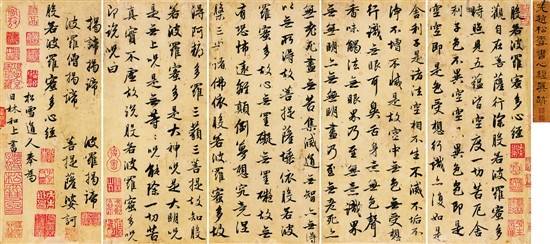 元趙松雪書心經真跡
般若波羅蜜多心經
觀自在菩薩行深般若波羅蜜多
時照見五蘊皆空度一切苦厄舍
利子色不異空空不異色色即是
空空即是色受想行識亦復如是
舍利子是諸法空相不生不滅不垢
不淨不增不減是故空中無色無受想
行識無眼耳鼻舌身意無色聲
香味觸法無眼界乃至無意識界
無無明亦無無明盡乃至無老死亦
無老死盡無苦集滅道無智亦無得
以無所得故菩提薩埵依般若波
羅蜜多故心無罣礙無罣礙故無
有恐怖遠離顛倒夢想究竟涅
槃三世諸佛依般若波羅蜜多故
得阿耨多羅三藐三菩提故知般
若波羅蜜多是大神咒是大明咒
是無上咒是無等等咒能除一切苦
真實不虛故說般若波羅蜜多咒
即說咒曰
揭諦揭諦 波羅揭諦
波羅僧揭諦 菩提薩婆訶
般若波羅蜜多心經
松雪道人奉為
日林和上書